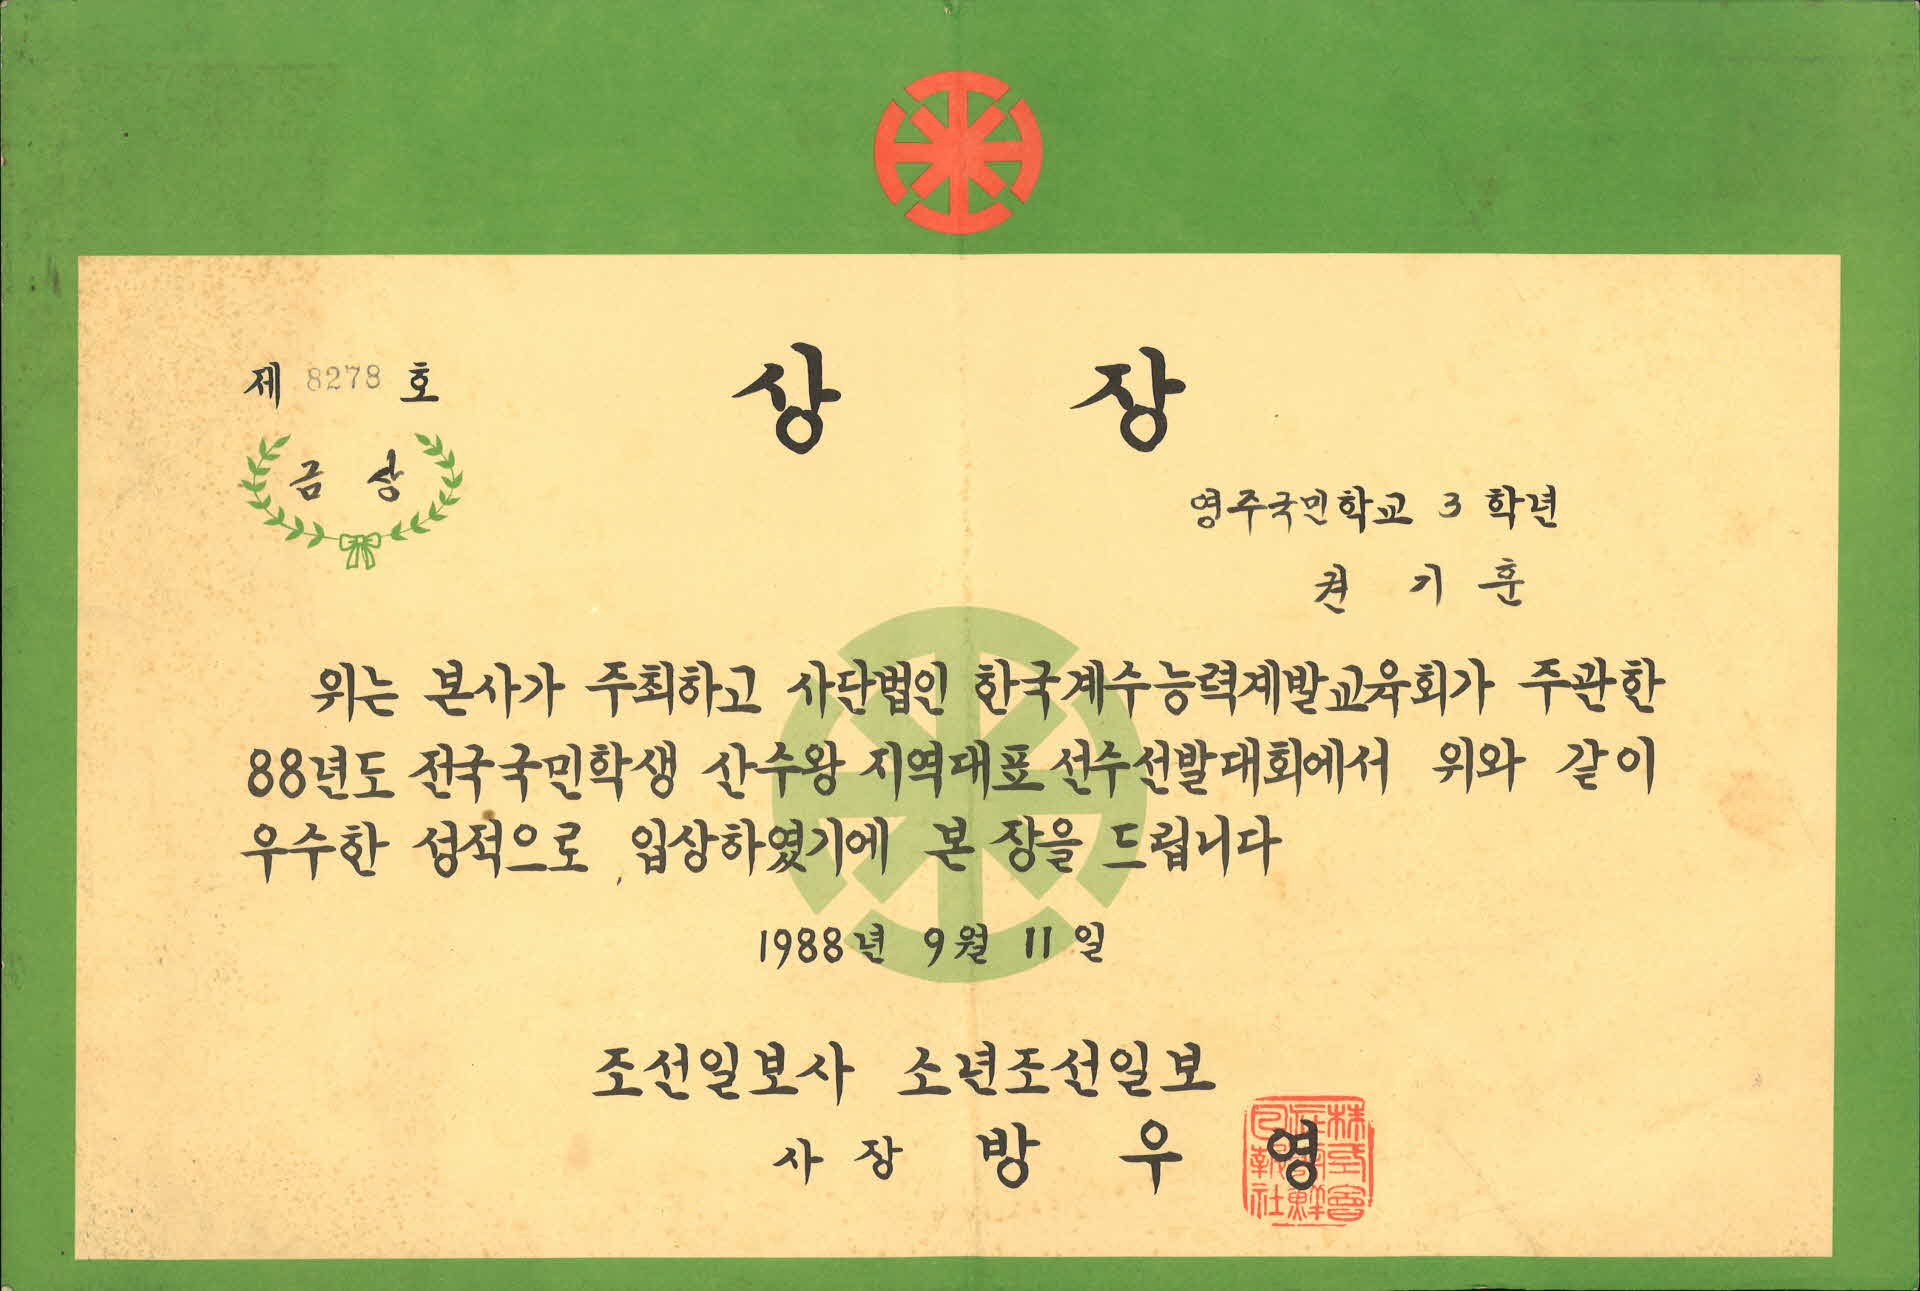 상 장
제 8278 호
금 상
영주국민학교 3 학년
권 기 훈
위는 본사가 주최하고 사단법인 한국계수능력계발교육회가 주관한
88년도 전국국민학생 산수왕 지역대표 선수선발대회에서 위와 같이
우수한 성적으로 입상하였기에 본 장을 드립니다
1988년 9월 11일
조선일보사 소년조선일보
사 장 방 우 영
株式會
社朝鮮
日報社